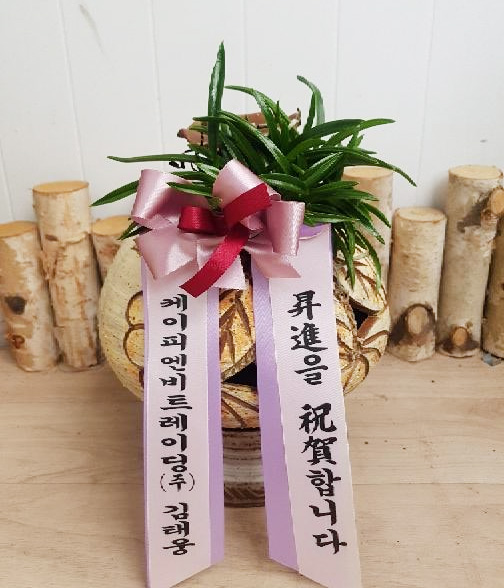 케이피엔비트레이딩(주) 김태웅
昇進을 祝賀합니다